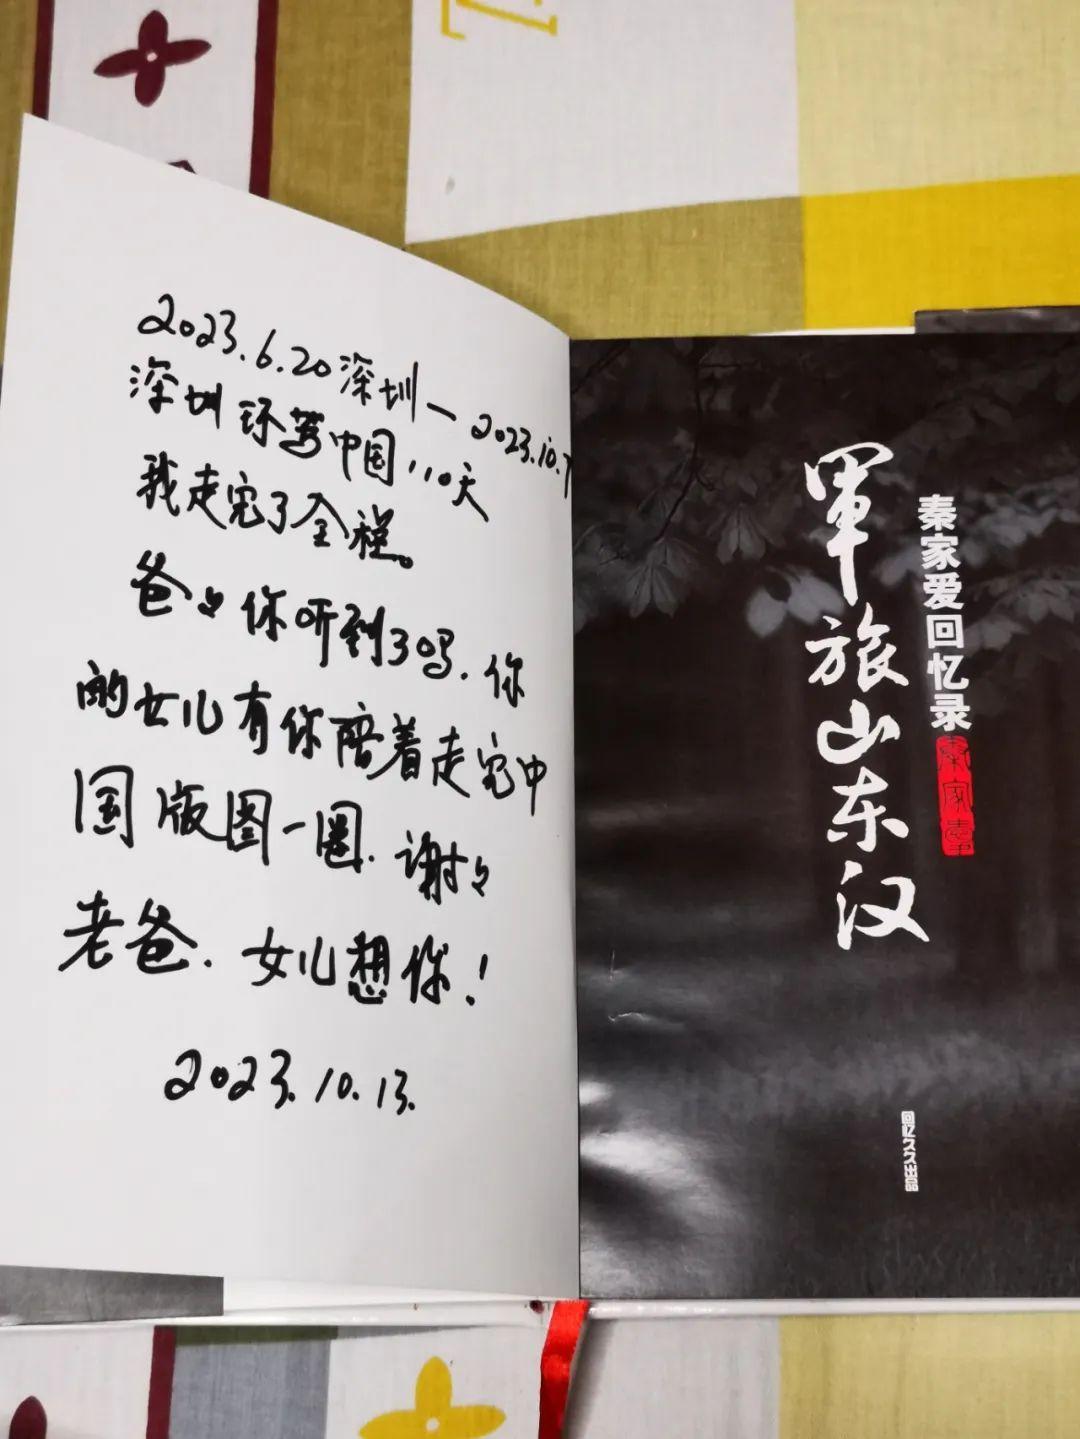 2023.6.20深圳—2023.10.7
深圳环驾中国110天
我走完了全程。
爸爸你听到了吗.你
的女儿有你陪着走完中
国版图一圈.谢谢
老爸.女儿想你!
2023.10.13.
军旅山东汉
秦家爱回忆录
回忆久久出品